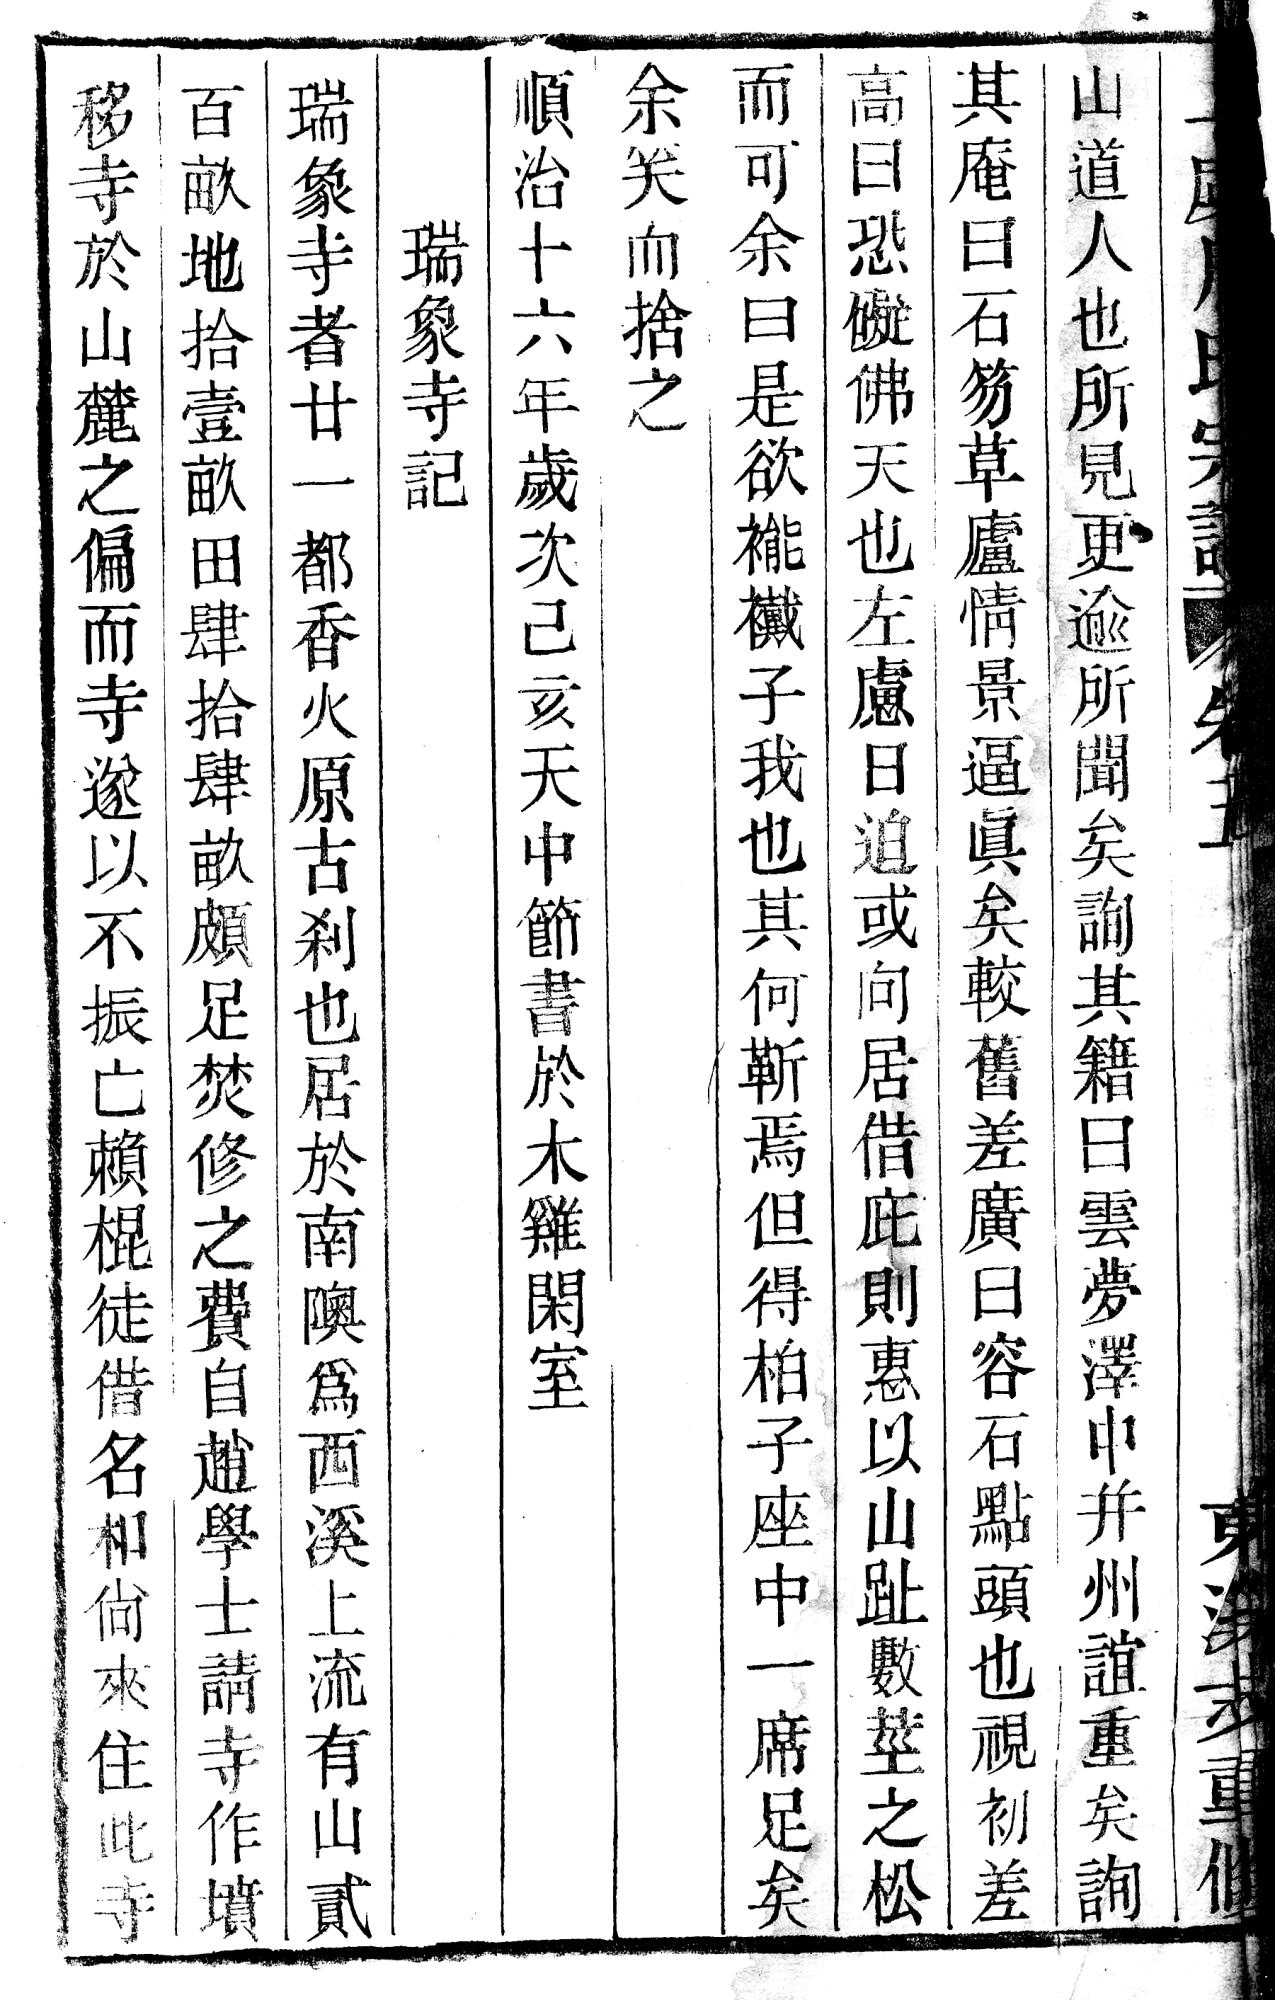 山道人也所見更逾所聞矣詢其籍曰雲夢澤中并州誼重矣詢
其庵曰石笏草廬情景逼眞矣較舊差廣曰容石點頭也視初差
高曰恐礙佛天也左慮日迫或向居借庇則惠以山趾數莖之松
而可余曰是欲褦襶子我也其何靳焉但得柏子座中一席足矣
余笑而捨之
順治十六年歲次己亥天中節書於木雞閑室
瑞象寺記
瑞象寺者廿一都香火原古刹也居於南隩爲西溪上流有山貳
百畝地拾壹畝田肆拾肆畝頗足焚修之費自趙學士請寺作墳
移寺於山麓之偏而寺遂以不振亡賴棍徒借名和尙來住此寺